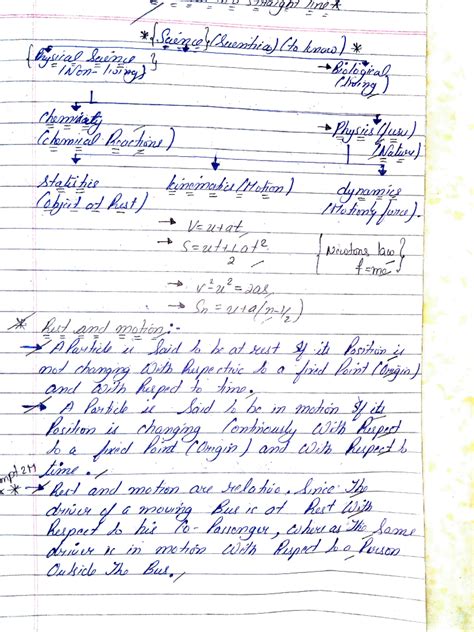 in a straight line *
* {Science} (Scientia) (to know) *
{Pysical Science} → Biological
(Non-living) (living)
Chemisty → Physics (fusu)
(Chemical Reactions) (Nature)
Statitics kinematics (Motion) dynamics
(object at Rest) (Motion, force).
→ V=u+at
→ S=ut+1at²
2
{Newtons law
f=ma}
→ v²-u²=2as
→ Sn=u+a(n-1/2)
* Rest and motion:-
→ A Particle is Said to be at rest If its Position is
not changing With Respective to a fixed Point (Origin)
and With Respect to time.
→ A Particle is Said to be in motion If its
Position is changing Continously With Respect
to a fixed Point (Origin) and With Respect to
time.
2M
* * → Rest and motion are relative. Since The
driver of a moving Bus is at Rest With
Respect to his Co-Passenger, where as The Same
driver is in motion With Respect to a Person
Outside The Bus.